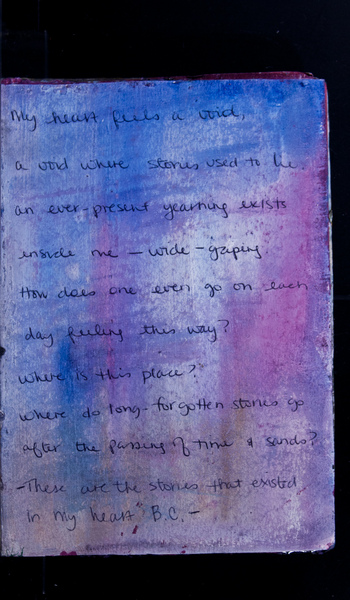 My heart feels a void,
a void where stories used to lie.
an ever-present yearning exists
inside me – wide-gaping.
How does one even go on each
day feeling this way?
where is this place?
where do long-forgotten stories go
after the passing of time & sands?
-These are the stories that existed
in my "heart" B.C. -